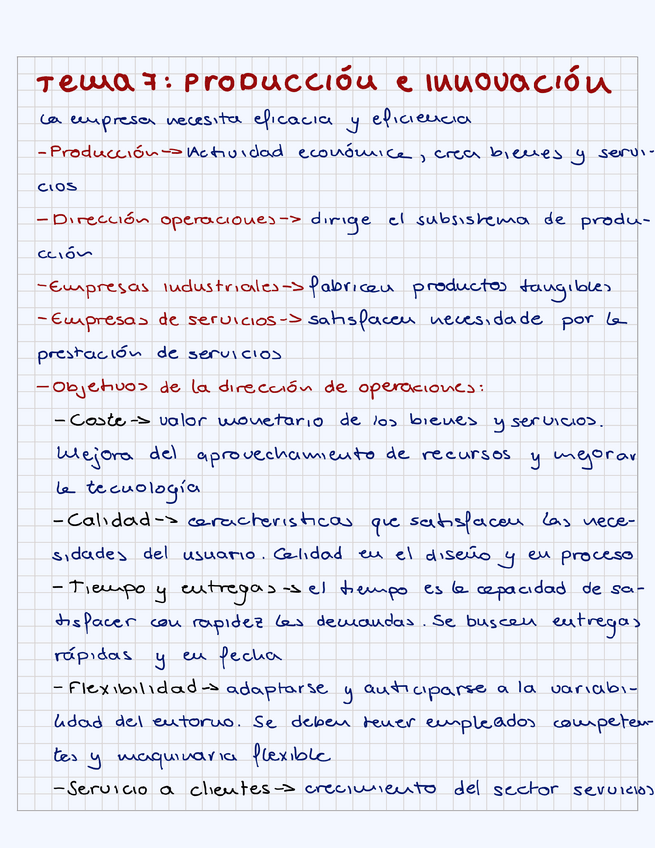 Tema 7: Producción e Innovación
La empresa necesita eficacia y eficiencia
-Producción-> Actividad económica, crea bienes y servi-
cios
-Dirección operaciones-> dirige el subsistema de produ-
cción
-Empresas industriales-> fabrican productos tangibles
-Empresas de servicios-> satisfacen necesidade por la
prestación de servicios
-Objetivos de la dirección de operaciones:
-Coste-> valor monetario de los bienes y servicios.
Mejora del aprovechamiento de recursos y mejorar
la tecnología
-Calidad-> caracteristicas que satisfacen las nece-
sidades del usuario. Calidad en el diseño y en proceso
-Tiempo y entregas-> el tiempo es la capacidad de sa-
tisfacer con rapidez las demandas. Se buscan entregas
rápidas y en fecha
-Flexibilidad-> adaptarse y anticiparse a la variabi-
lidad del entorno. Se deben tener empleados competen-
tes y maquinaria flexible
-Servicio a clientes-> crecimiento del sector servicios